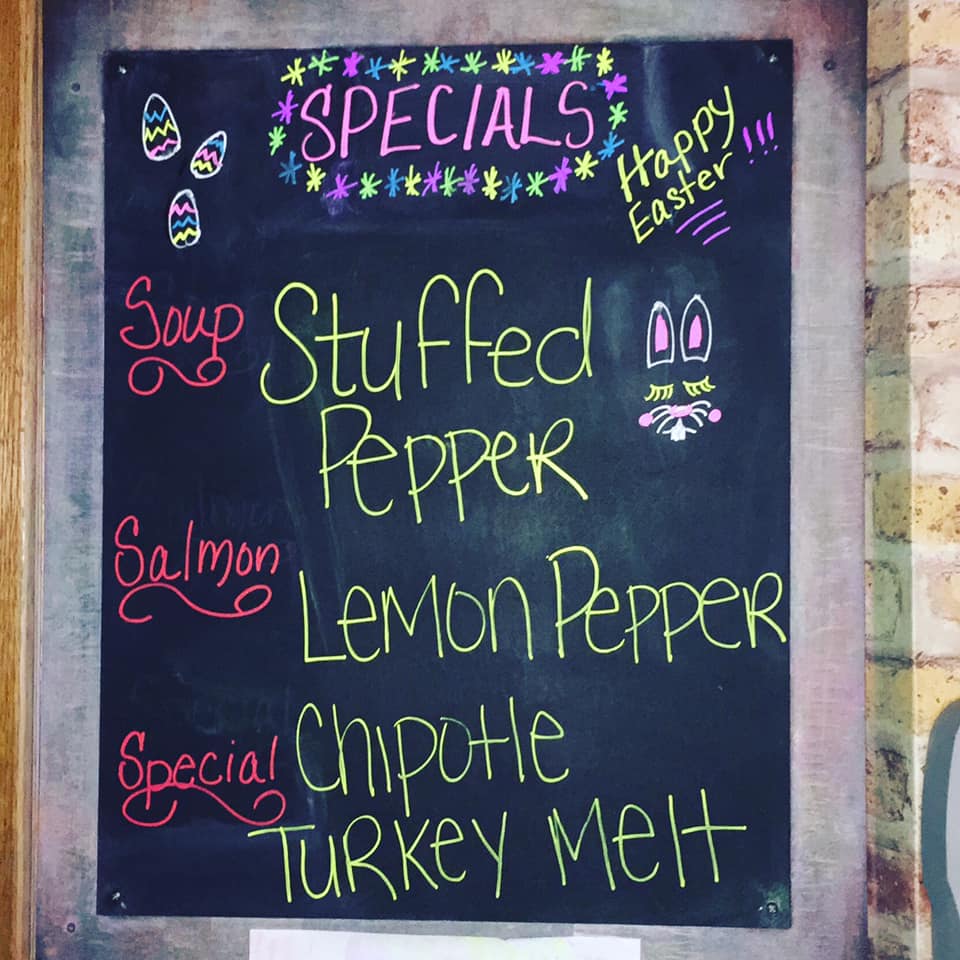 SPECIALS
Happy
Easter!!!
Soup
Stuffed
Pepper
Salmon
Lemon Pepper
Special
Chipotle
Turkey Melt